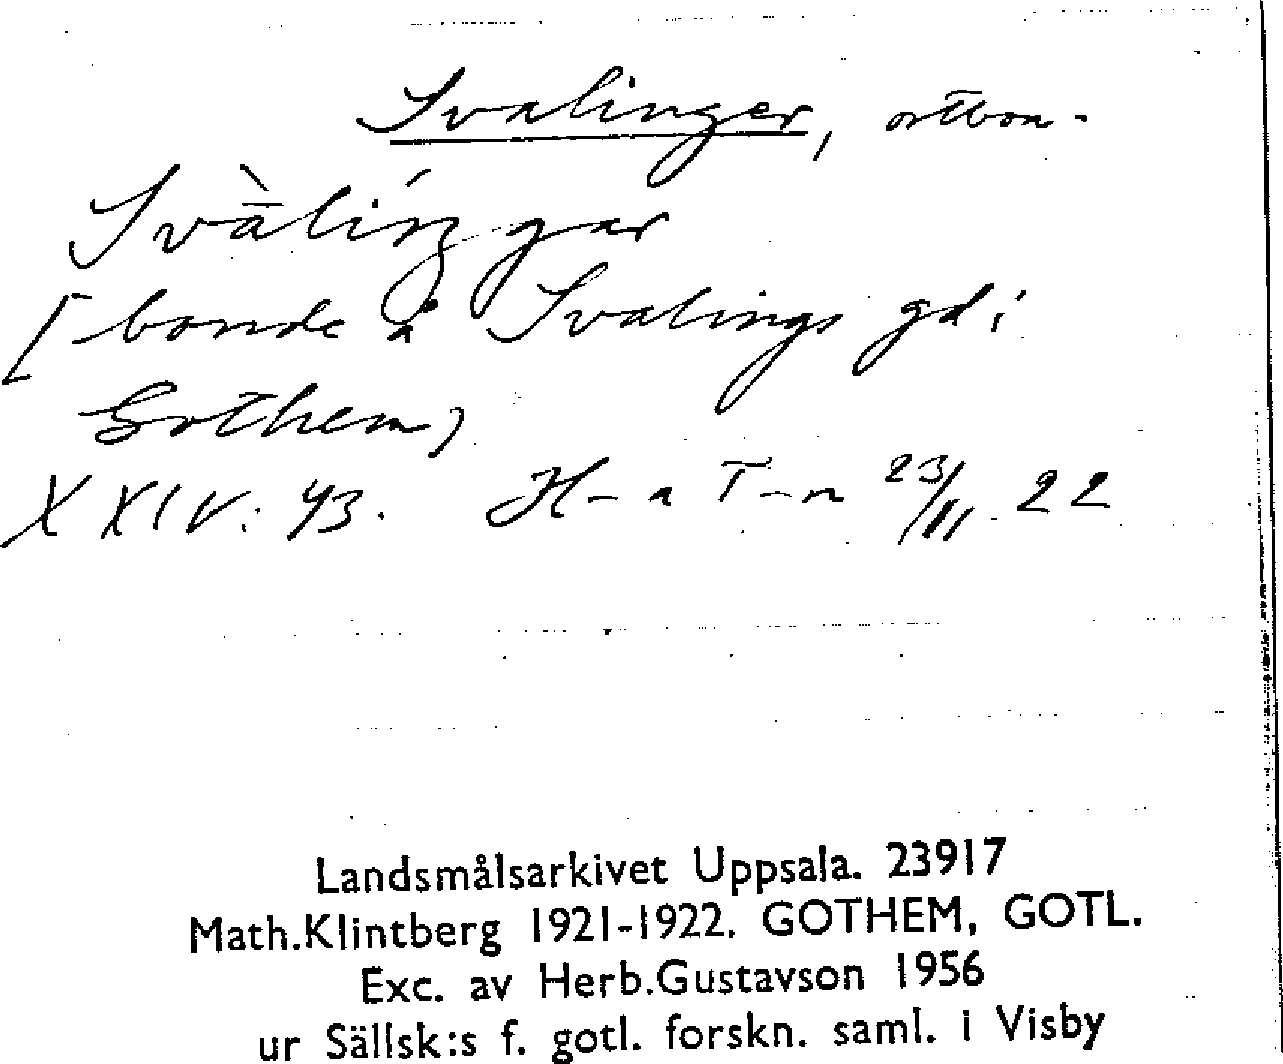 Svalinger, ortbon-
Svā̀líŋgar
[bonde å Svalings gd i
Gothem]
XXIV: 43. H-a T-n 23/11 22
Landsmålsarkivet Uppsala. 23917
Math.Klintberg 1921-1922. GOTHEM, GOTL.
Exc. av Herb.Gustavson 1956
ur Sällsk:s f. gotl. forskn. saml. i Visby